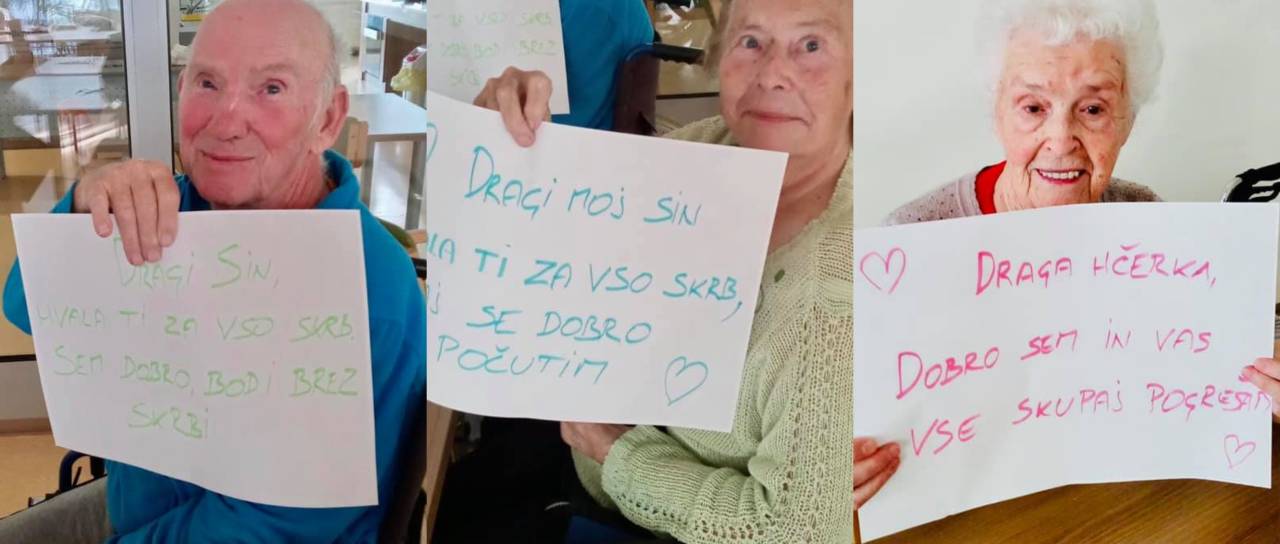 DRAGI SIN,
HVALA TI ZA VSO SKRB.
SEM DOBRO, BODI BREZ
SKRBI
TI ZA VSO SKRB.
DOBRO, BODI BREZ
SKRBI
DRAGI MOJ SIN
LA TI ZA VSO SKRB,
J SE DOBRO
POČUTIM
DRAGA HČERKA,
DOBRO SEM IN VAS
VSE SKUPAJ POGREŠAM